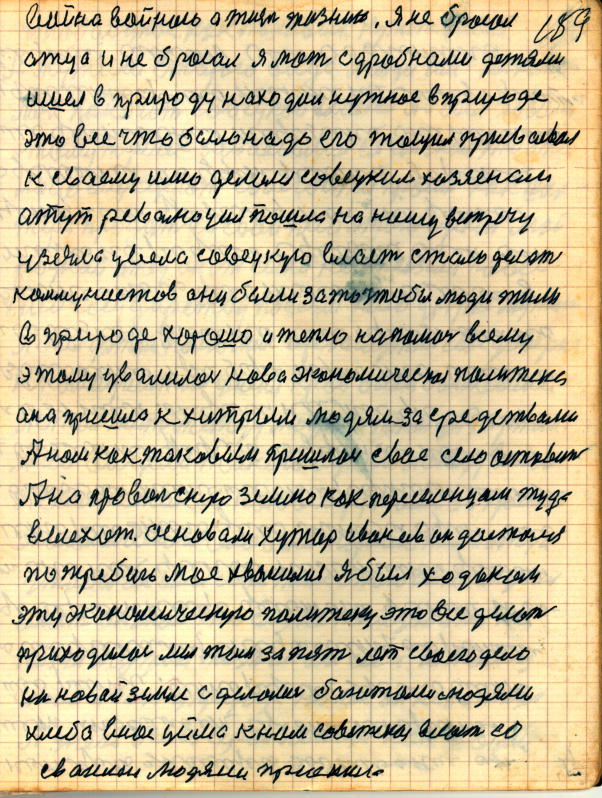 война войною а жизн жизнью. Я не бросал 189
отца и не бросал Я мат с дробнами детями
ишел в природу находил нужное в природе
это все что было надо его
к своему имю делили совецким хозяенам
а тут революция пошла на нашу встречу
узяла увела совецкую власт стало делат
коммунистов они были за то чтобы люди жили
в природе хорошо и тепло на помоч всему
этому увалилас нова экономическая политека
она пришила к хитрым людям за средствами
А нам как таковым пришлос свое село оставит
А на провалскую землю как переселенцам туда
выехат. основали хутар Иванов он достался
потребит мое я был ходоком
эту экономическую политеку это все делат
приходилос мы там за пят лет своего дело
на новай земле сделалис багатами людями
хлеба вное уйма к нам советская власт со
своими людями